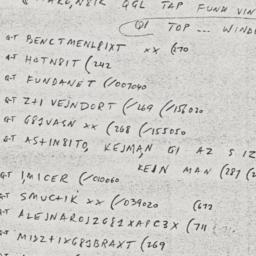 QGL TAP FUND VIN
Q1 TOP ... WINDE
G-T BENCTMENLPIXT XX (670
G-T HOTN8IT (242
G-T FUNDANET (/007040
G-T Z+1 VEJNDORT (/269 (/155020
G-T G81VASN XX (268 (/155050
G-T AS+1N8ITO, KEJMAN G1 AZ S IZ
KEJN MAN (289 (2
G-T 1,MICER (/010060
G-T SMUC+1K XX (/034020 (672
G-T ALEJNAROJ2G81XAPC3X (711
G-T MIDZ+1XG81BRAXT (269